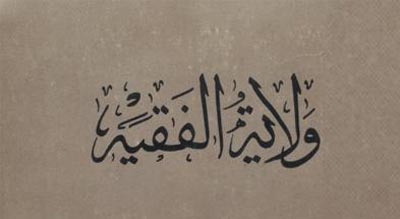 وَلايةُ الفَقيّه